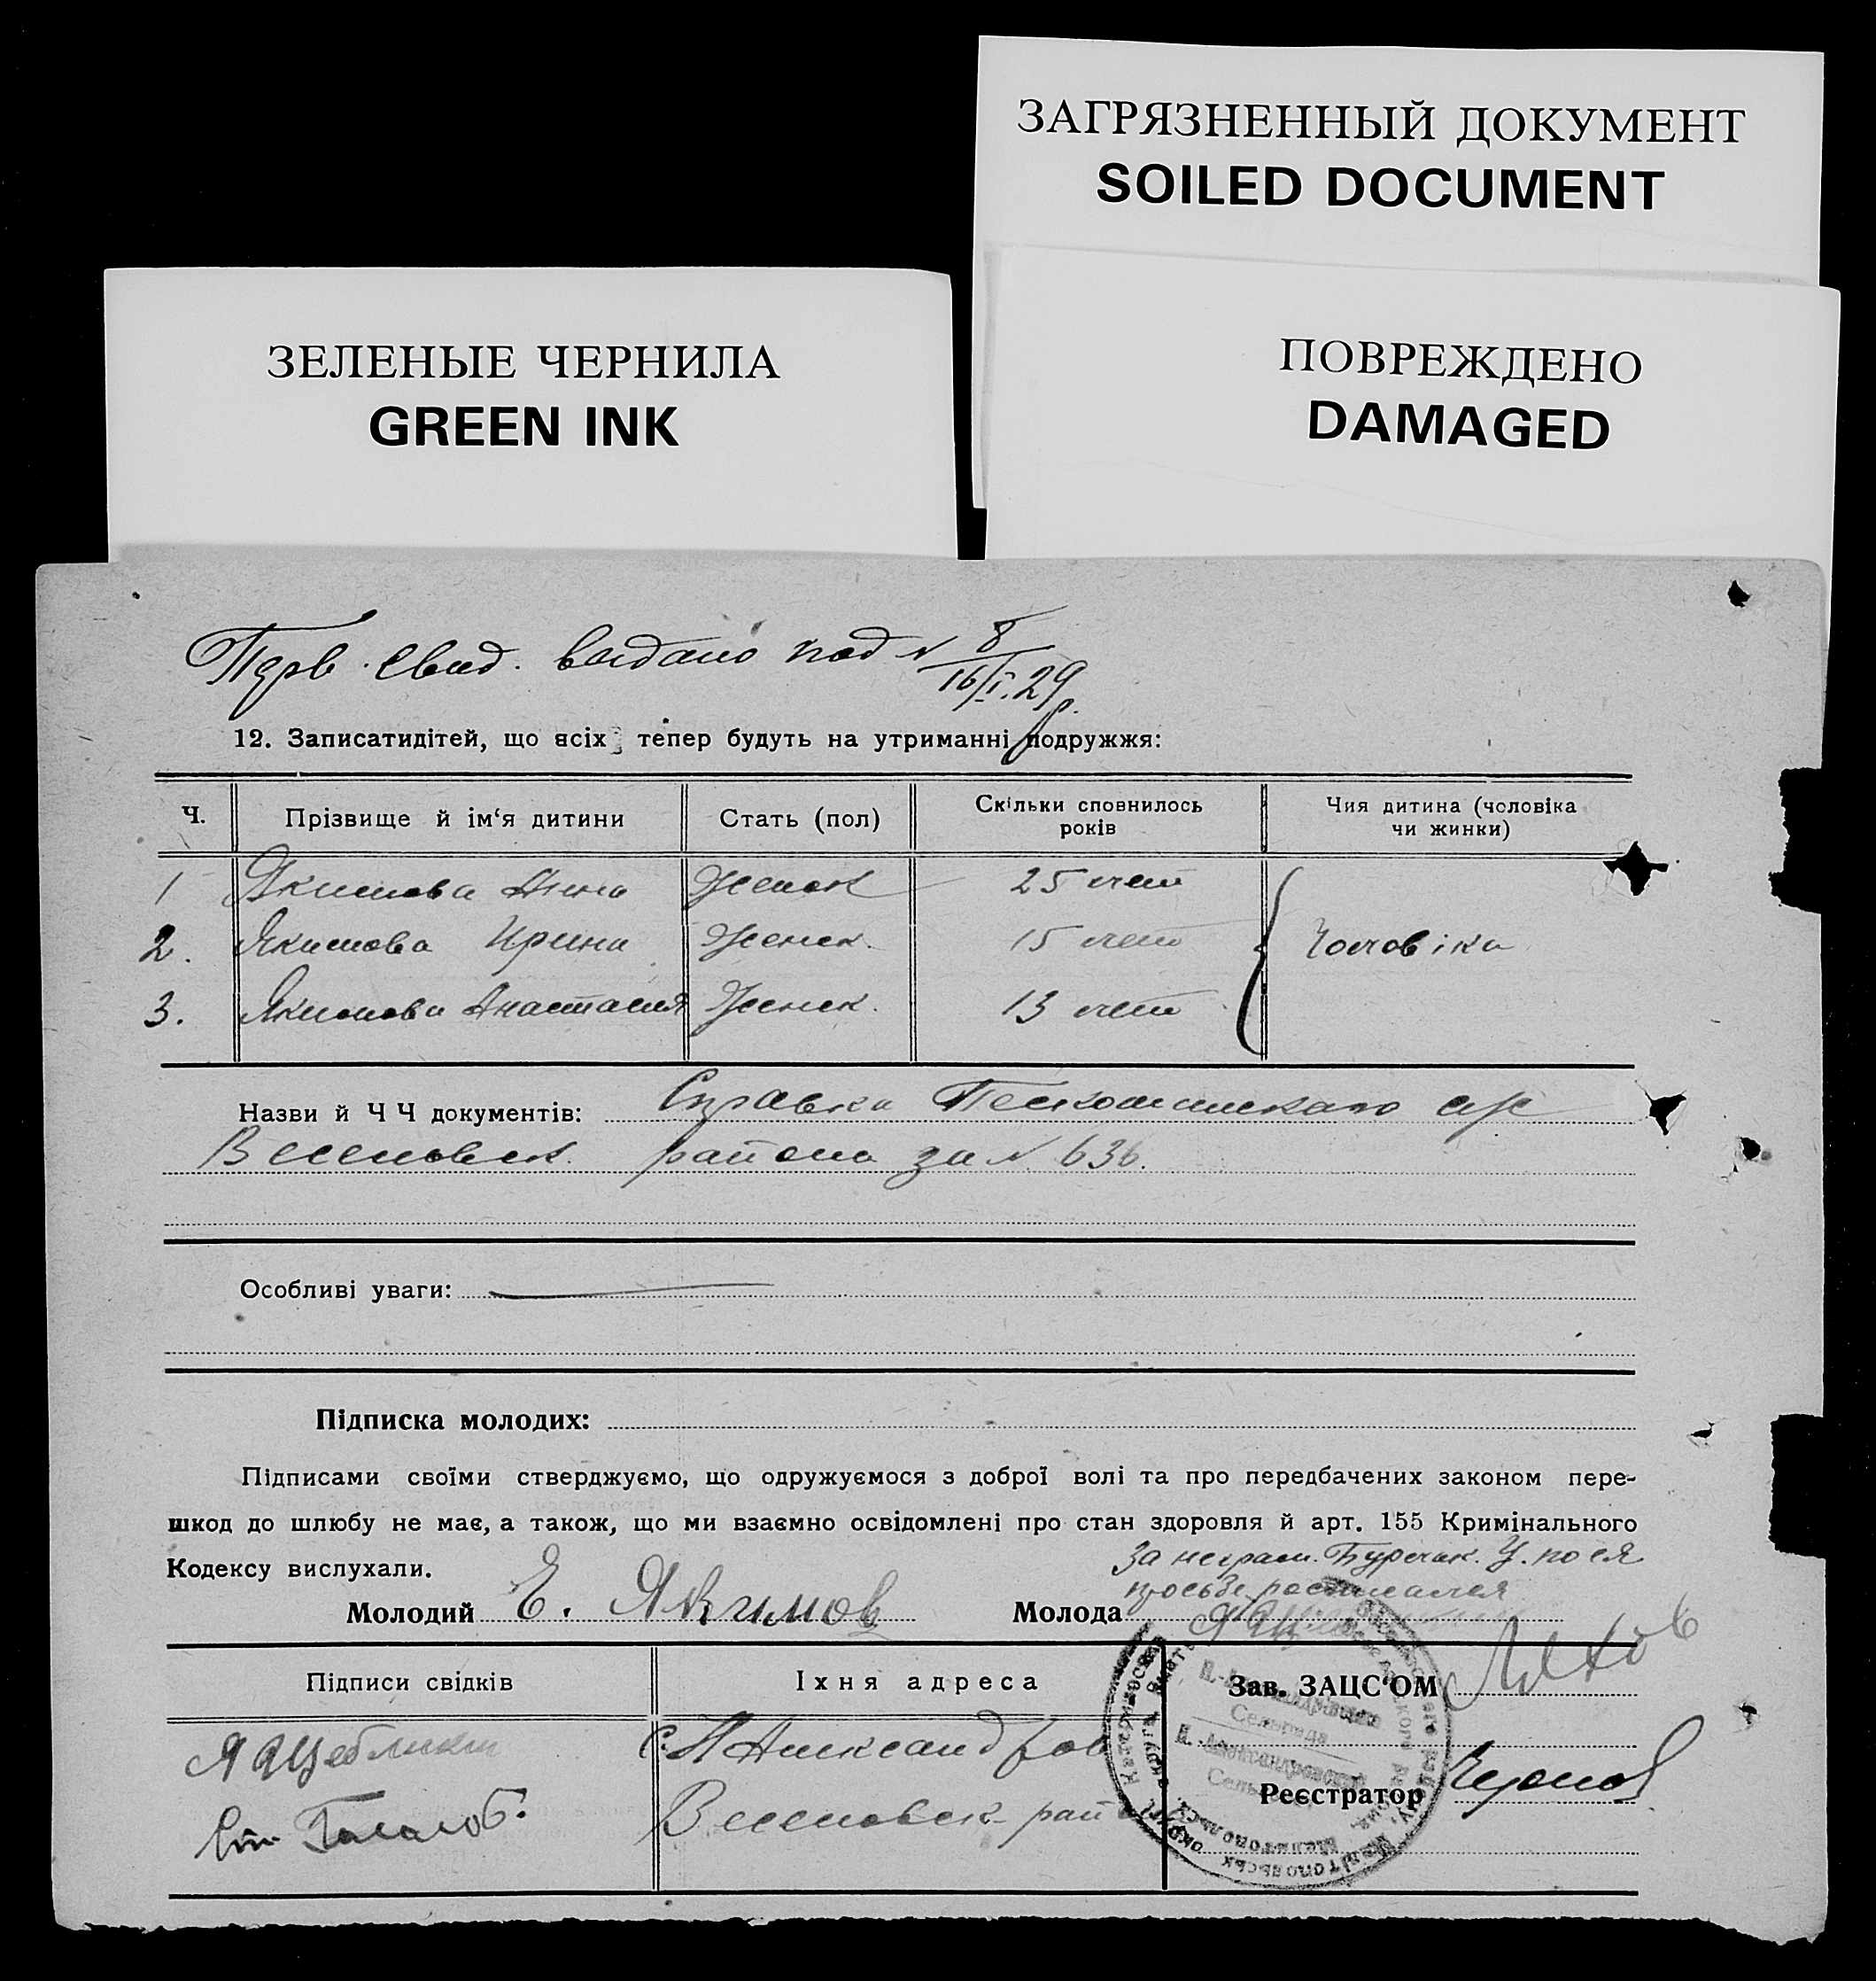 ЗАГРЯЗНЕННЫЙ ДОКУМЕНТ
SOILED DOCUMENT
ЗЕЛЕНЫЕ ЧЕРНИЛА
GREEN INK
ПОВРЕЖДЕНО
DAMAGED
Перв. Свид. выдано под № 8
16/I.29р.
12. Записатидітей, що всіх тепер будуть на утриманні подружжя:
Ч. Прізвище й ім‘я дитини Стать (пол) Скільки сповнилось років Чия дитина (чоловіка чи жинки)
1 Якимова Анна Женск 25 лет
2. Якимова Ирина Женск. 15 лет Чоловіка
3. Якимова Анастасия Женск. 13 лет
Назви й Ч Ч документів: Справка с/с
Веселовск. района за № 636.
Особливі уваги:
Підписка молодих:
Підписами своїми стверджуємо, що одружуємося з доброї волі та про передбачених законом пере-
шкод до шлюбу не має, а також, що ми взаємно освідомлені про стан здоровля й арт. 155 Кримінального
Кодексу вислухали.
За неграм. У. по ея
просьбе расписался
Молодий Е. Якимов Молода
Підписи свідків Їхня адреса Зав. ЗАЦС‘ОМ
с. Н Александров
Веселовск. рай
Реєстратор